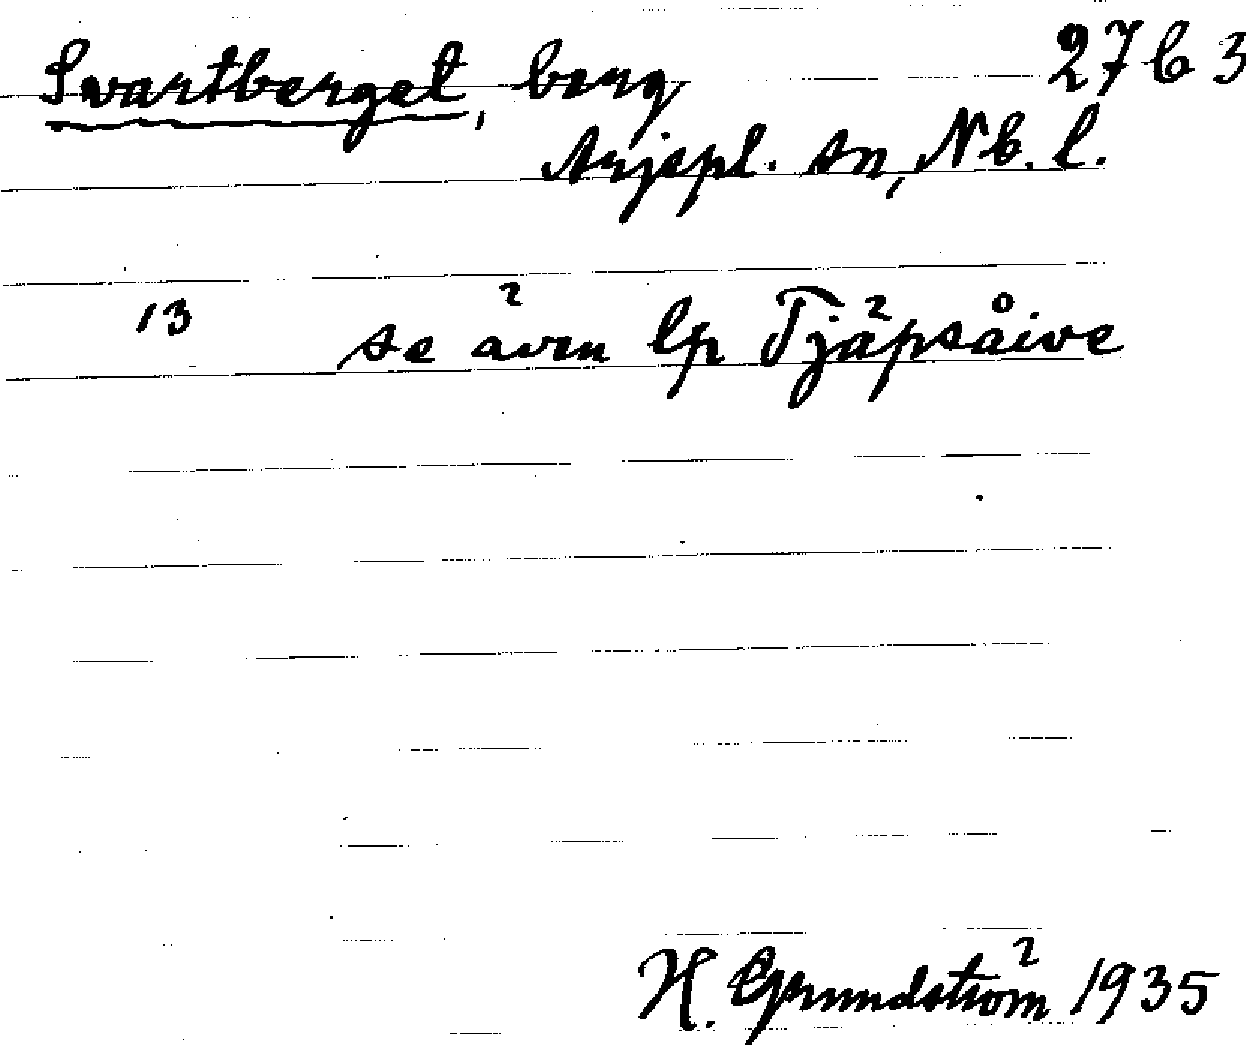 Svartberget, berg 27b3
Arjepl. sn, Nb. l.
13 se även lp Tjäpsåive
H. Grundström 1935